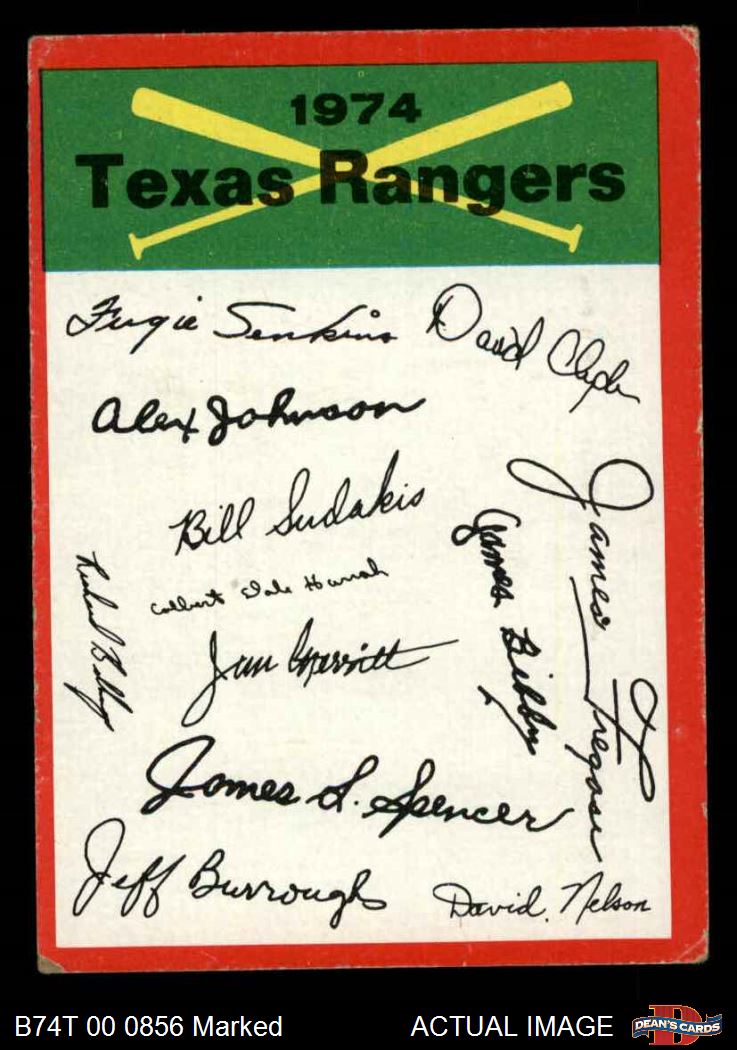 1974
Texas Rangers
Fergie Jenkins
David Clyde
Alex Johnson
Bill Sudakis
James Fregosi
James Bibby
Colbert Dale Harrah
Richard Billings
Jim Merritt
James L. Spencer
Jeff Burroughs
David. Nelson
B74T 00 0856 Marked
ACTUAL IMAGE
DEAN'S CARDS